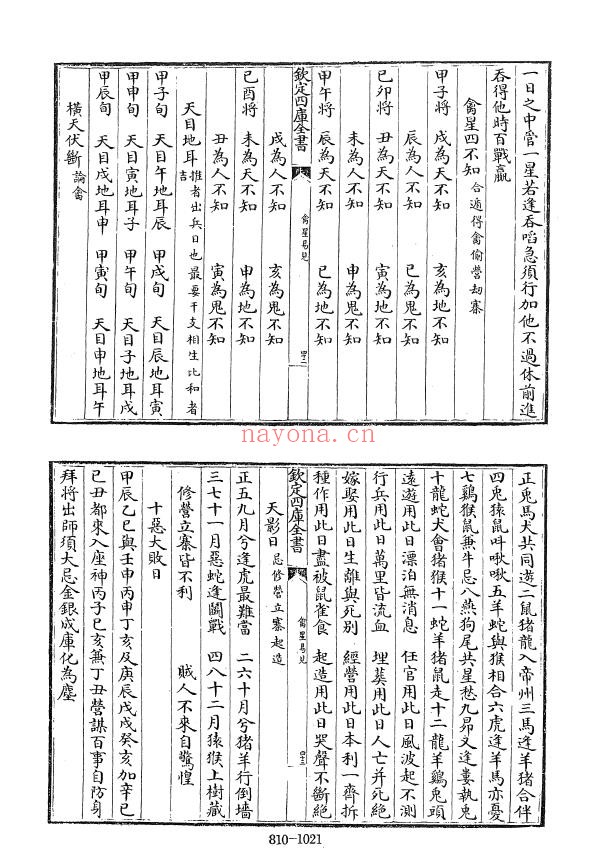 一日之中管一星若逢吞啗急須行加他不過休前進
吞得他時百戰贏
禽星四不知 合適得禽偷營劫寨
甲子將 戌為天不知 亥為地不知
辰為人不知 巳為鬼不知
己卯將 丑為天不知 寅為地不知
未為人不知 申為鬼不知
甲午將 辰為天不知 巳為地不知
欽定四庫全書 禽星易見 四二
戌為人不知 亥為鬼不知
己酉將 未為天不知 申為地不知
丑為人不知 寅為鬼不知
天目地耳 推者出兵日也最要干支相生比和者吉
甲子旬 天目午地耳辰 甲戌旬 天目辰地耳寅
甲申旬 天目寅地耳子 甲午旬 天目子地耳戌
甲辰旬 天目戌地耳申 甲寅旬 天目申地耳午
橫天伏斷 論禽
正兎馬犬共同遊二鼠猪龍入帝州三馬逢羊猪合伴
四兎猿鼠呌啾啾五羊蛇與猴相合六虎逢羊馬亦憂
七鷄猴鼠兼牛忌八燕狗尾共星愁九昴又逢婁執兎
十龍蛇犬會猪猴十一蛇羊猪鼠走十二龍羊鷄兎頭
遠遊用此日漂泊無消息 任官用此日風波起不測
行兵用此日萬里皆流血 埋葬用此日人亡并死絶
嫁娶用此日生離與死别 經營用此日本利一齊拆
種作用此日盡被鼠雀食 起造用此日哭聲不斷絶
欽定四庫全書 禽星易見 四三
天影日 忌修營立寨起造
正五九月兮逢虎最難當 二六十月兮猪羊行倒墻
三七十一月惡蛇逢鬭戰 四八十二月猿猴上樹藏
修營立寨皆不利 賊人不來自驚惶
十惡大敗日
甲辰乙巳與壬申丙申丁亥及庚辰戊戌癸亥加辛巳
己丑都來入座神丙子已亥兼丁丑營謀百事自防身
拜將出師須大忌金銀成庫化為塵
nayona.cn
810-1021